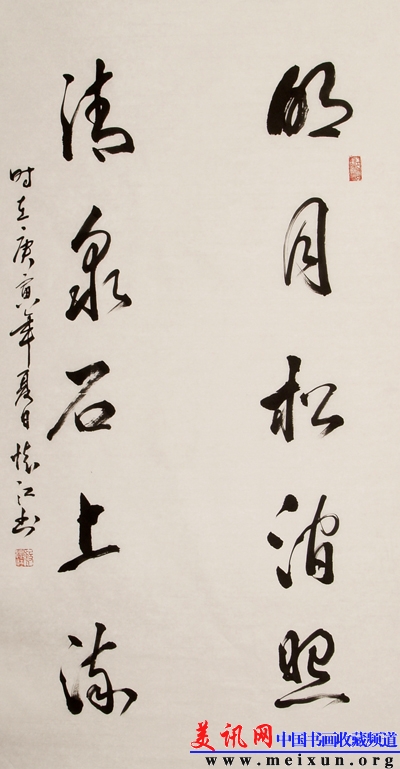 明月松间照
清泉石上流
时在庚寅年夏日怀江书
美讯网 中国书画收藏频道
www.meixun.org